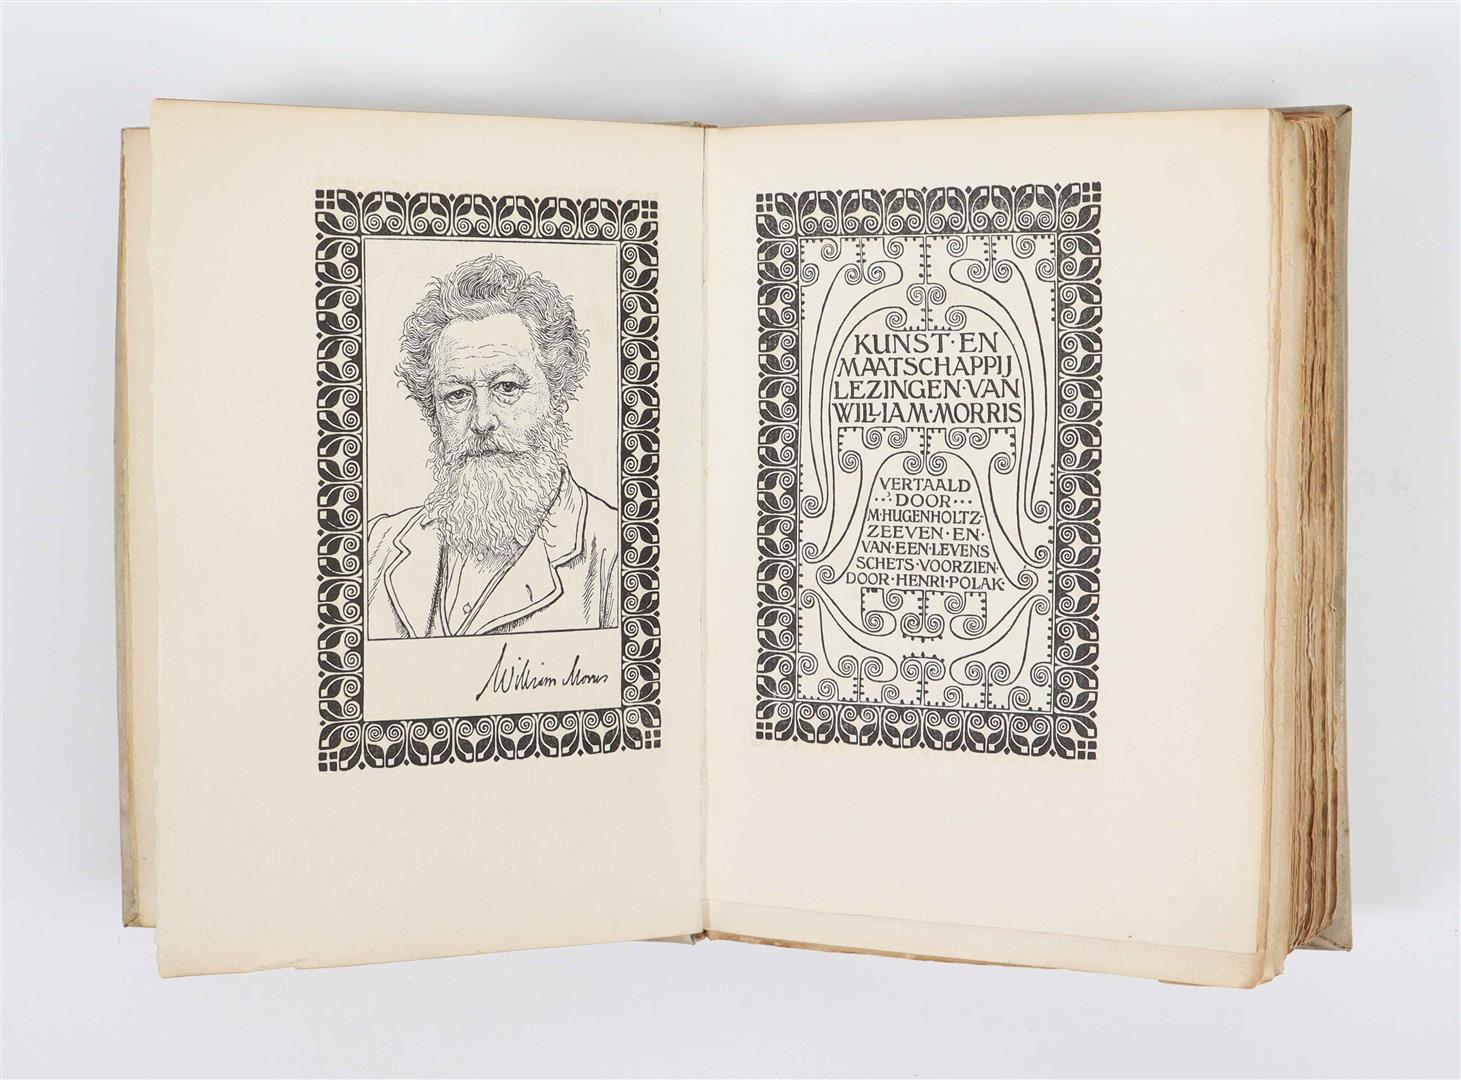 William Morris
KUNST·EN
MAATSCHAPPIJ
LEZINGEN·VAN
WILLIAM·MORRIS
VERTAALD
DOOR
M·HUGENHOLTZ-
ZEEVEN·EN·
VAN·EEN·LEVENS
SCHETS·VOORZIEN·
DOOR·HENRI·POLAK·